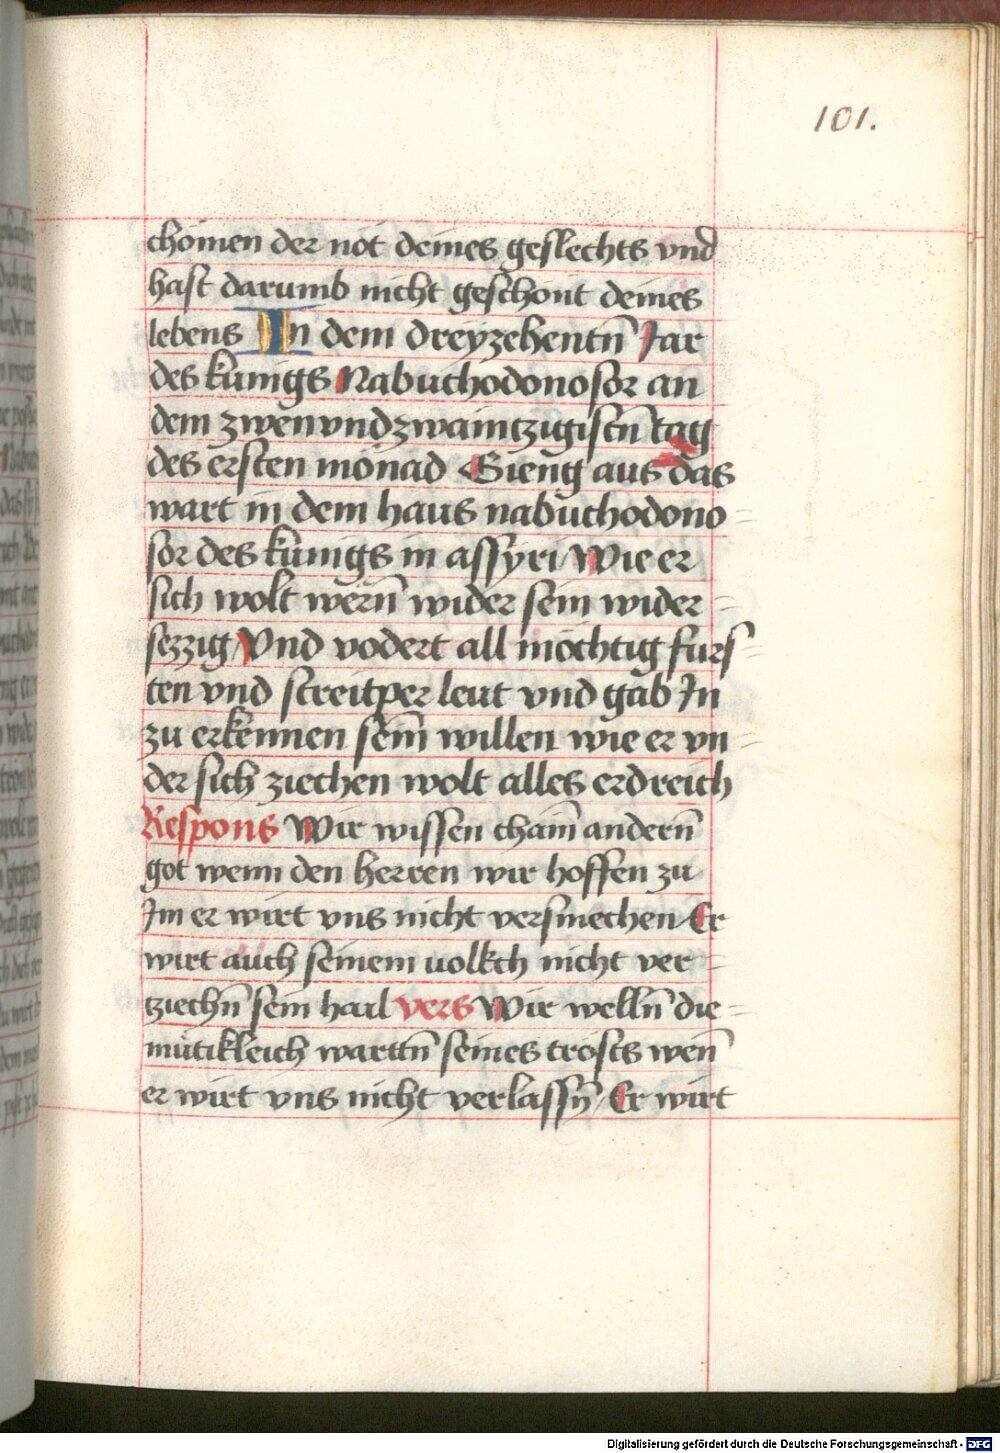 101.
chomen der not deines geslechts vnd
hast darumb nicht geschont deines
lebens In dem dreyzehentn̄ Jar
des kunigs Nabuchodonosor an
dem zwenvndzwaintzigistn̄ tag
des ersten monad Gieng aus das
wart in dem haus nabuchodono=
sor des kunigs in assyri Wie er
sich wolt wern̄ wider sein wider=
sezzig Vnd vodert all möchtig furs=
ten vnd streitper leut vnd gab In
zu erkennen sein̄ willen wie er vn=
der sich ziechen wolt alles erdreich
Respons Wir wissen chain̄ andern̄
got wenn den herren wir hoffen zu
Im er wirt vns nicht versmechen Er
wirt auch seinem uolkch nicht ver=
ziechn̄ sein hail vers Wir welln̄ die=
mütikleich warttn̄ seines trosts wen̄
er wirt vns nicht verlassn̄ Er wirt
Digitalisierung gefördert durch die Deutsche Forschungsgemeinschaft - DFG